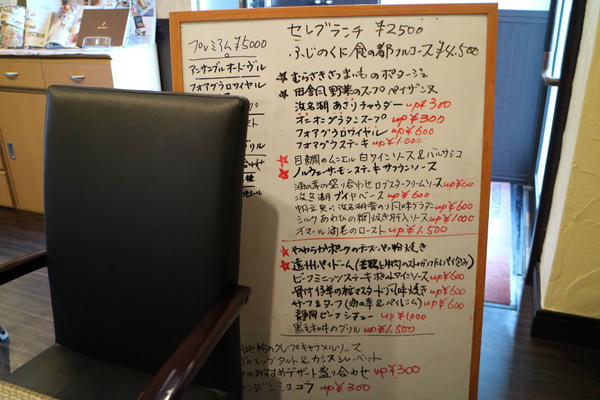 プレミアム ¥5000
アンサンブルオードヴル
フォアグラロワイヤル
セレブランチ ¥2500
ふじのくに食の都フルコース ¥4.500
★むらさきさつまいものポタージュ
★田舎風野菜のスープ ペイザンヌ
浜名湖あさりチャウダー up¥300
オニオングラタンスープ up¥300
フォアグラロワイヤル up¥600
フォアグラステーキ up¥1000
★目鯛のムニエル 白ワインソース&バルサミコ
★ノルウェーサーモンステーキ サフランソース
海の幸の盛り合わせ ロブスタークリームソース up¥600
浜名湖ブイヤベース up¥600
up¥600
up¥1000
オマール海老のロースト up¥1.500
★やわらかポークのチーズパン粉焼き
★遠州パイドーム
ビーフミニッツステーキ ポルトワインソース up¥600
骨付仔羊の粒マスタード風味焼き up¥600
サーフ&ターフ up¥600
静岡ビーフシチュー up¥1000
黒毛和牛のグリル up¥1.500
クレープキャラメルソース
タルト&カシスシャーベット
のおすすめデザート盛り合わせ up¥300
ショコラ up¥300